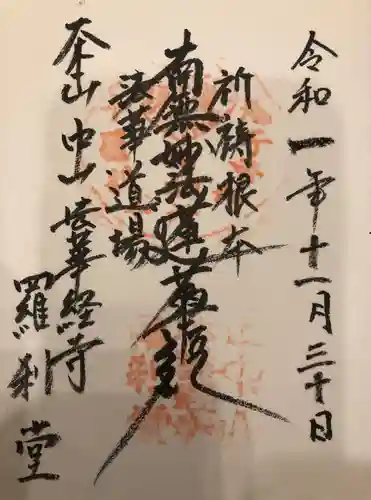 令和一年十一月三十日
祈祷根本
南無妙法蓮華経
法華道場
本山中山法華経寺
羅刹堂